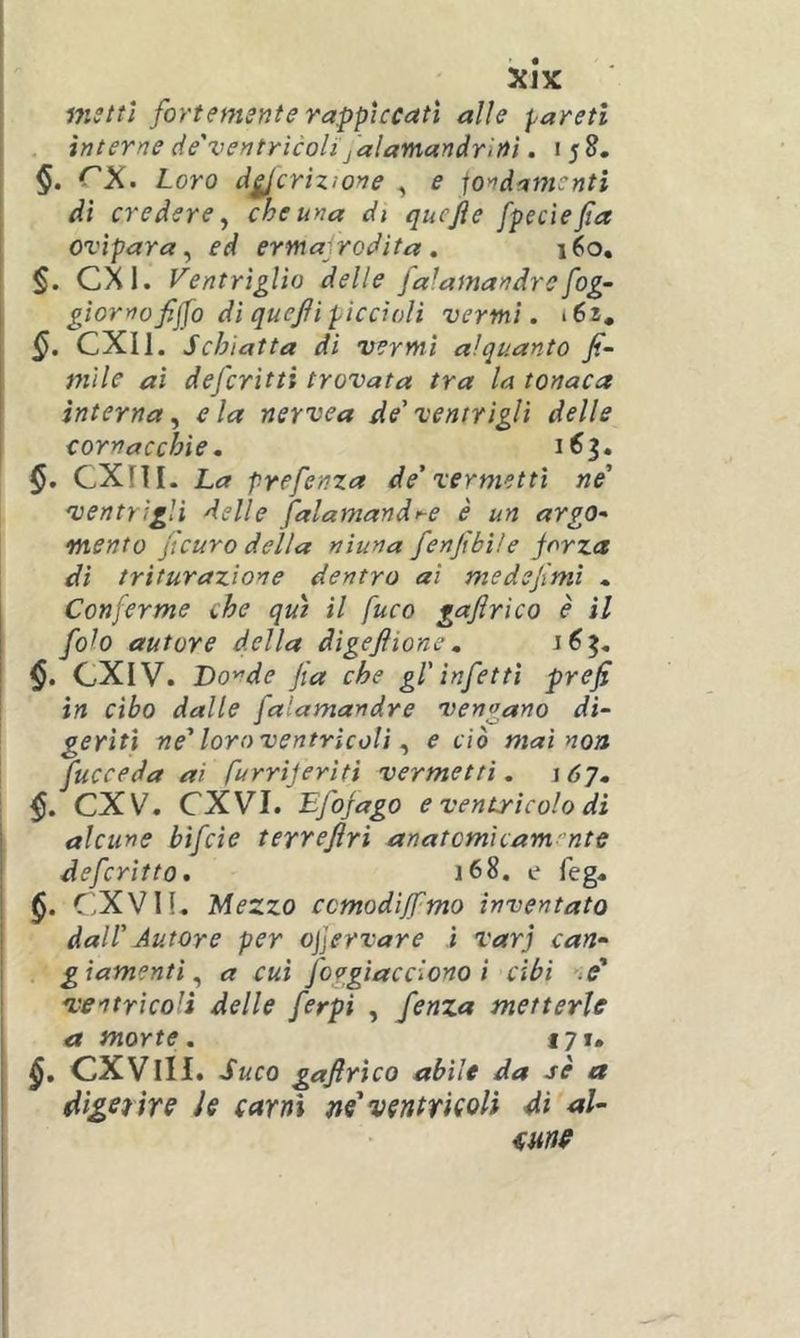 xix
metti fortemente rappiccati alle pareti
interne de' ventricoli ſalamandrini. 158.
§. CX. Loro deſcrizione, e fondamenti
di credere, che una di queſte ſpecie ſia
ovipara, ed ermafrodita. 160.
§. CXI. Ventriglio delle ſalamandre ſog-
giorno fiſſo di queſti piccioli vermi. 162.
§. CXII. Schiatta di vermi alquanto ſi-
mile ai deſcritti trovata tra la tonaca
interna, e la nervea de' ventrigli delle
cornacchie. 163.
§. CXIII. La preſenza de' vermetti ne'
ventrigli delle ſalamandre è un argo-
mento ſicuro della niuna ſenſibile forza
di triturazione dentro ai medeſimi.
Conferme che quì il ſuco gaſtrico è il
ſolo autore della digeſtione. 163.
§. CXIV. Donde ſia che gl' inſetti preſi
in cibo dalle ſalamandre vengano di-
geriti ne' loro ventricoli, e ciò mai non
ſucceda ai ſurriferiti vermetti. 167.
§. CXV. CXVI. Eſofago e ventricolo di
alcune biſcie terreſtri anatomicamente
deſcritto. 168. e ſeg.
§. CXVII. Mezzo comodiſſmo inventato
dall' Autore per oſſervare i varj can-
giamenti, a cui ſoggiacciono i cibi ne'
ventricoli delle ſerpi, ſenza metterle
a morte. 171.
§. CXVIII. Suco gaſtrico abile da sè a
digerire le carni ne' ventricoli di al-
cune